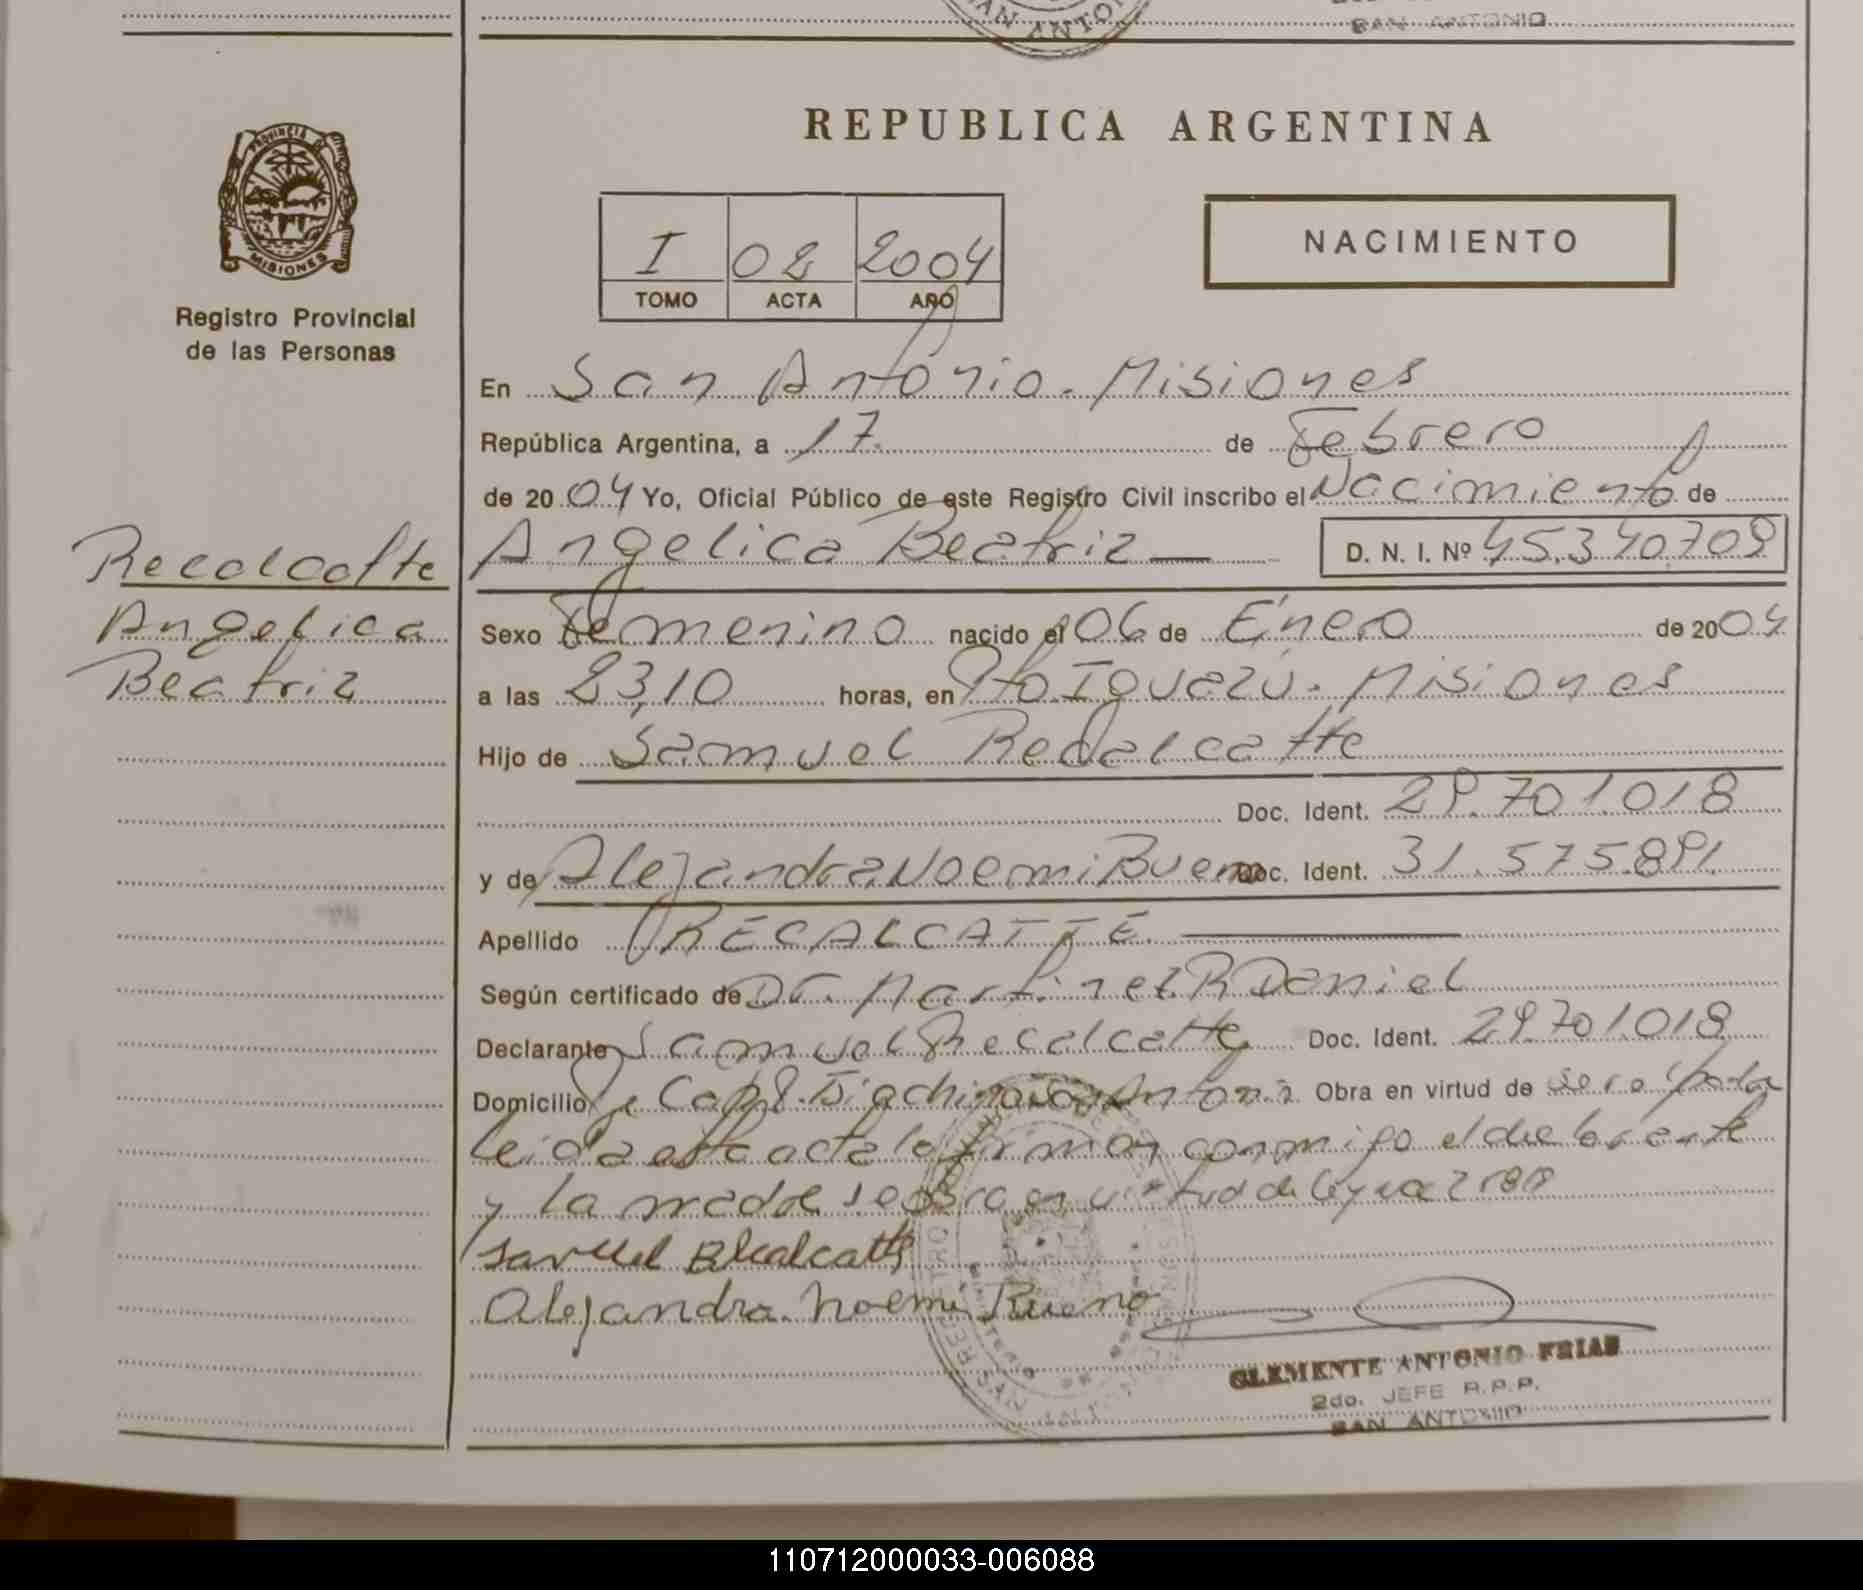 SAN ANTONIO
SAN ANTONIO
PROVINCIA
MISIONES
Registro Provincial
de las Personas
Recalcatte
Angelica
Beatriz
REPUBLICA ARGENTINA
I 02 2004
TOMO ACTA AÑO
NACIMIENTO
En San Antonio - Misiones
República Argentina, a 17 de Febrero
de 2004 Yo, Oficial Público de este Registro Civil inscribo el Nacimiento de
Angelica Beatriz — D. N. I. Nº 45.340.709
Sexo Femenino nacido el 06 de Enero de 2004
a las 23,10 horas, en Pto Iguazú - Misiones
Hijo de Samuel Recalcatte
Doc. Ident. 29.701.018
y de Alejandra Noemi Bueno Doc. Ident. 31.575.891
Apellido RECALCATTE —
Según certificado de Dr. Martinez R Daniel
Declarante Samuel Recalcatte Doc. Ident. 29.701.018
Domicilio San Antonio Obra en virtud de
leida esta acta la firman conmigo el declarante
y la madre se obra en virtud de Ley
Samuel Recalcatte
Alejandra Noemi Bueno
CLEMENTE ANTONIO FRIAS
2do. JEFE R.P.P.
SAN ANTONIO
110712000033-006088